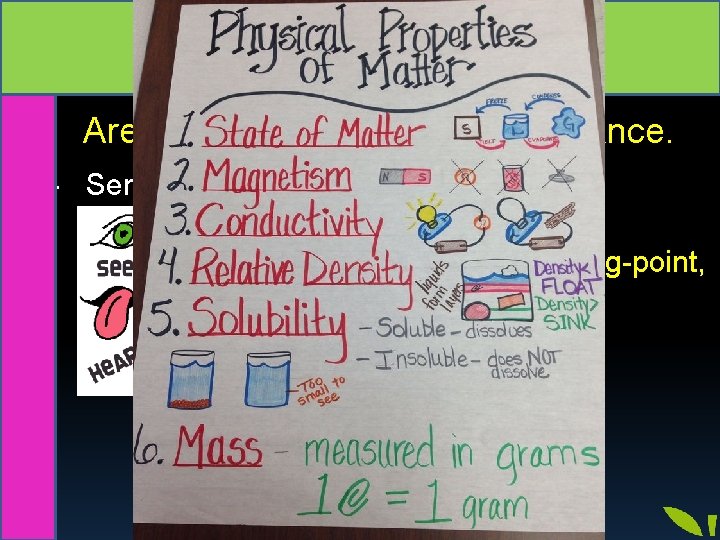 Physical Properties
of Matter
Are
ance.
1. State of Matter
S L G
FREEZE CONDENSE
MELT EVAPORATE
2. Magnetism
N S
3. Conductivity
4. Relative Density
liquids
form
layers
Density<1
FLOAT
Density>1
SINK
g-point,
see
HeAR
5. Solubility
- Soluble - dissolves
- Insoluble - does NOT
dissolve
Too
small to
see
6. Mass - measured in grams
1 = 1 gram